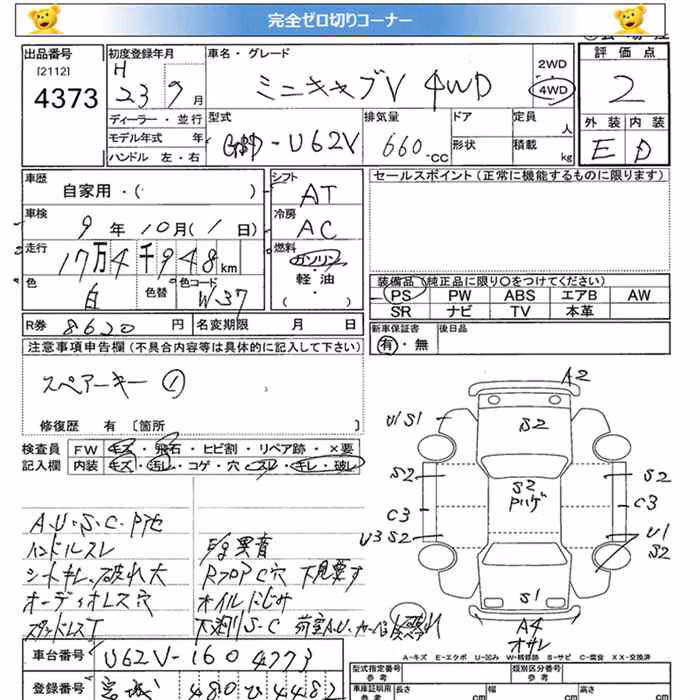 完全ゼロ切りコーナー
出品番号
[2112]
4373
初度登録年月
H
23 9月
ディーラー・並行
モデル年式 年
ハンドル 左・右
車名・グレード
ミニキャブV 4WD
2WD
4WD
評価点
2
外装 内装
E D
型式
GBD-U62V
排気量
660 -CC
ドア
形状
定員
人
積載
kg
車歴
自家用・( )
車検
9年 10月( 1 日)
走行
17万4千948km
色
白
色替
色コード
W-37
R券 8620 円
名変期限 月 日
シフト
AT
冷房
AC
燃料
ガソリン
・
軽・油
( )
セールスポイント(正常に機能するものに限ります)
装備品(純正品に限り○をつけてください)
PS PW ABS エアB AW
SR ナビ TV 本革
新車保証書
有・無
後日品
注意事項申告欄(不具合内容等は具体的に記入して下さい)
スペアーキー ①
修復歴 有 [箇所 ]
検査員
記入欄
FW キズ・飛石・ヒビ割・リペア跡・×要
内装 キズ・汚れ・コゲ・穴・スレ・キレ・破レ
A・U・S・C・P
ハンドルスレ
シートキレ、破れ大
オーディオレス穴
スタッドレスT
異音
RフロアC穴 下見要す
オイルにじみ
下廻りS・C
A2
U1 S1
S2
S2
S2
Pハゲ
S2
C3
C3
U3 S2
U1
S2
S1
A4
オサレ
A-キズ E-エクボ U-凹み W-補修跡 S-サビ C-腐食 XX-交換済
車台番号 U62V-1604773
登録番号 宮城 480 ひ 4482
型式指定番号
参考
類別区分番号
参考
車庫証明用
参考
長さ
cm
幅
cm
高さ
cm